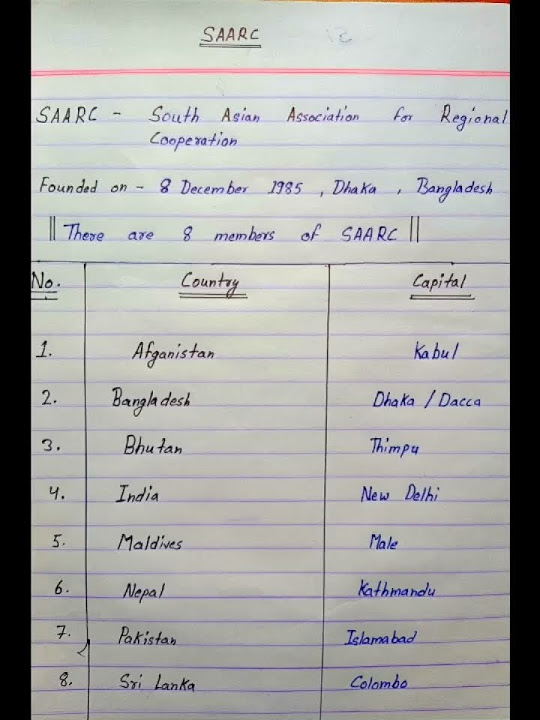 SAARC
SAARC - South Asian Association for Regional
Cooperation
Founded on - 8 December 1985 , Dhaka , Bangladesh
|| There are 8 members of SAARC ||
No. Country Capital
1. Afganistan Kabul
2. Bangladesh Dhaka / Dacca
3. Bhutan Thimpu
4. India New Delhi
5. Maldives Male
6. Nepal Kathmandu
7. Pakistan Islamabad
8. Sri Lanka Colombo